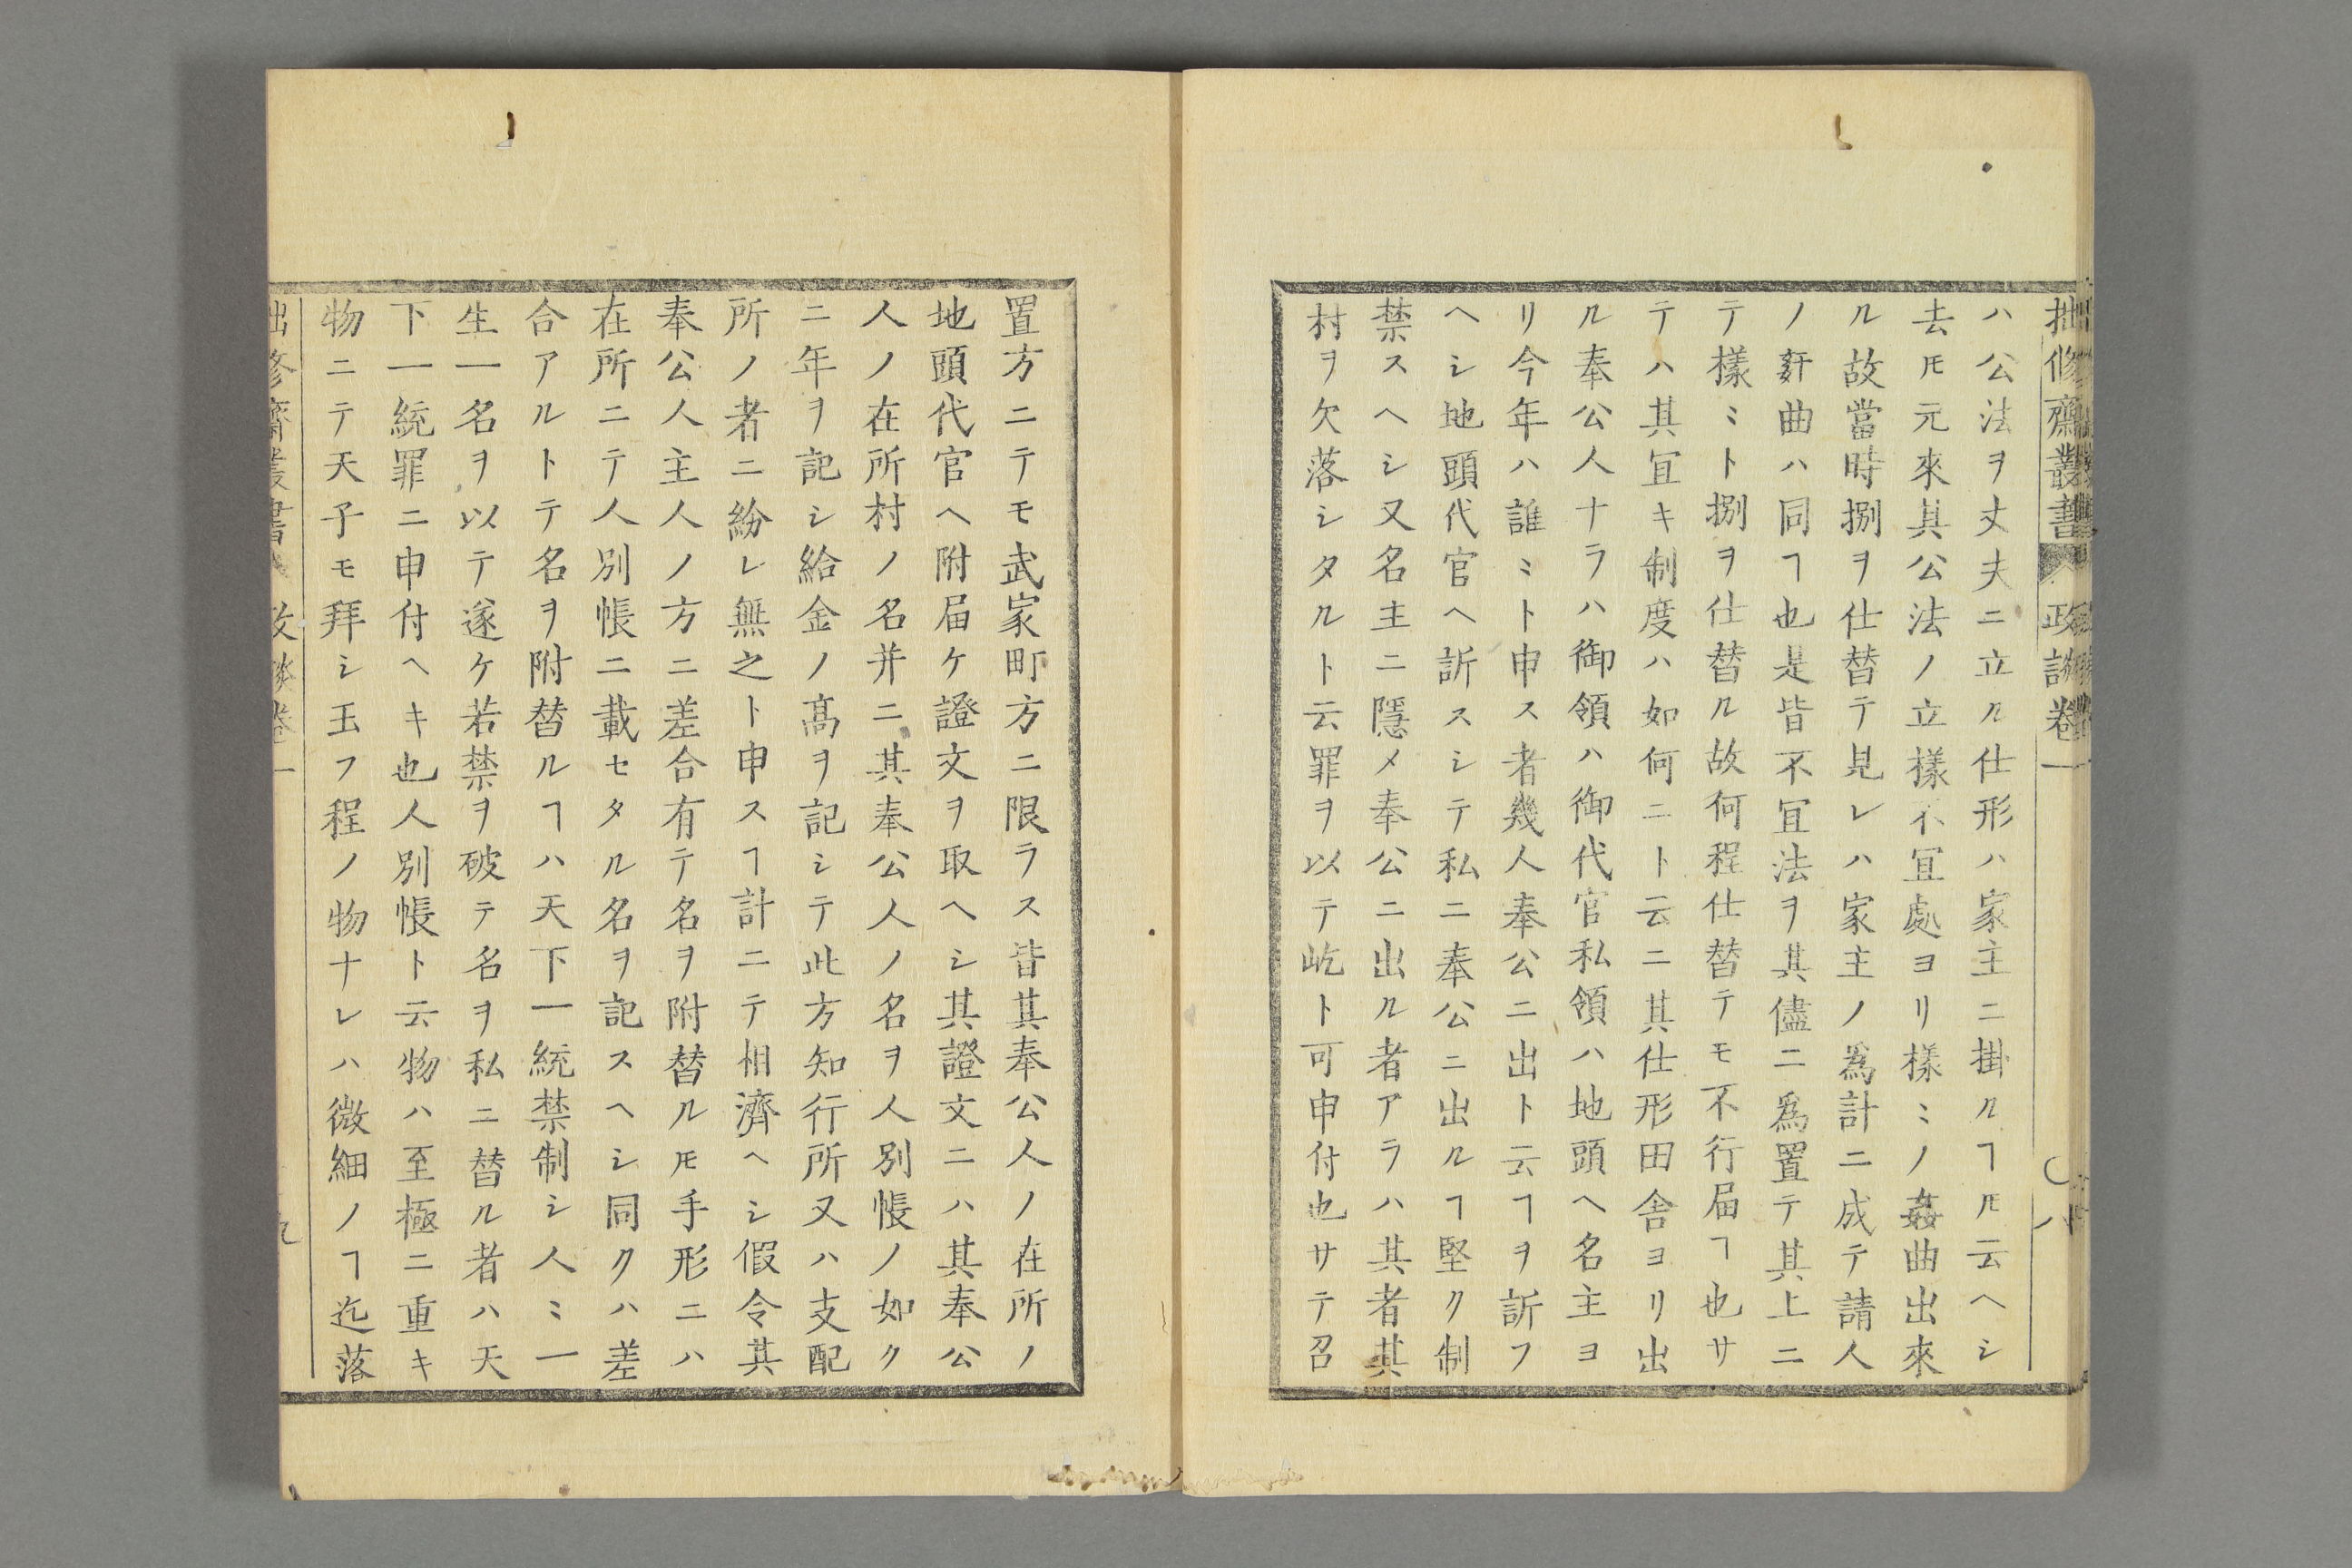 拙修齋叢書 政談卷一 八
ハ公法ヲ丈夫ニ立ル仕形ハ家主ニ掛ルヿ𪜈云ヘシ
去𪜈元來其公法ノ立樣不冝處ヨリ樣〻ノ姦曲出來
ル故當時捌ヲ仕替テ見レハ家主ノ爲計ニ成テ請人
ノ姧曲ハ同ヿ也是皆不冝法ヲ其儘ニ爲置テ其上ニ
テ樣〻ト捌ヲ仕替ル故何程仕替テモ不行届ヿ也サ
テハ其冝キ制度ハ如何ニト云ニ其仕形田舎ヨリ出
ル奉公人ナラハ御領ハ御代官私領ハ地頭ヘ名主ヨ
リ今年ハ誰〻ト申ス者幾人奉公ニ出ト云ヿヲ訴フ
ヘシ地頭代官ヘ訴スシテ私ニ奉公ニ出ルヿ堅ク制
禁スヘシ又名主ニ隱メ奉公ニ出ル者アラハ其者其
村ヲ欠落シタルト云罪ヲ以テ屹ト可申付也サテ召
置方ニテモ武家町方ニ限ラス皆其奉公人ノ在所ノ
地頭代官ヘ附届ケ證文ヲ取ヘシ其證文ニハ其奉公
人ノ在所村ノ名并ニ其奉公人ノ名ヲ人別帳ノ如ク
ニ年ヲ記シ給金ノ髙ヲ記シテ此方知行所又ハ支配
所ノ者ニ紛レ無之ト申スヿ計ニテ相濟ヘシ假令其
奉公人主人ノ方ニ差合有テ名ヲ附替ル𪜈手形ニハ
在所ニテ人別帳ニ載セタル名ヲ記スヘシ同クハ差
合アルトテ名ヲ附替ルヿハ天下一統禁制シ人〻一
生一名ヲ以テ遂ケ若禁ヲ破テ名ヲ私ニ替ル者ハ天
下一統罪ニ申付ヘキ也人別帳ト云物ハ至極ニ重キ
物ニテ天子モ拜シ玉フ程ノ物ナレハ微細ノヿ迄落
拙修齋叢書 政談卷一 九